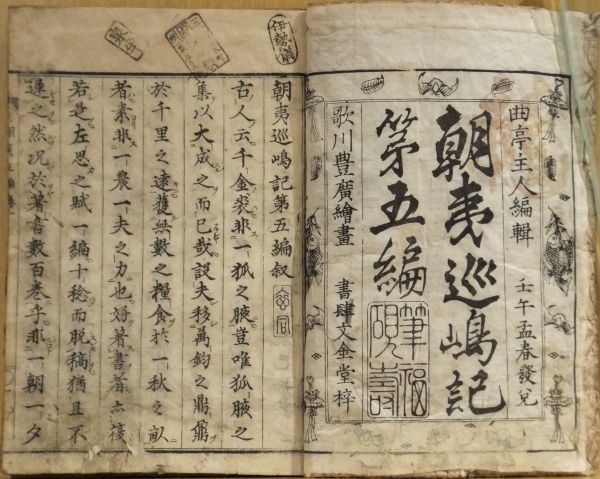 曲亭主人編輯 壬午孟春發兌
朝夷巡嶋記
第五編
筆福硯壽
歌川豊廣繪畫 書肆文金堂梓
朝夷巡嶋記第五編叙
古人云千金裘非一狐之腋豈唯狐腋之
集以大成之而已哉設夫移萬鈞之鼎鼐
於千里之遠蓰無數之糧食於一秋之畝
者素非一農一夫之力也好著書者亦復
若是左思之賦一編十稔而脱稿猶且不
遅之然况於著書數百巻乎非一朝一夕